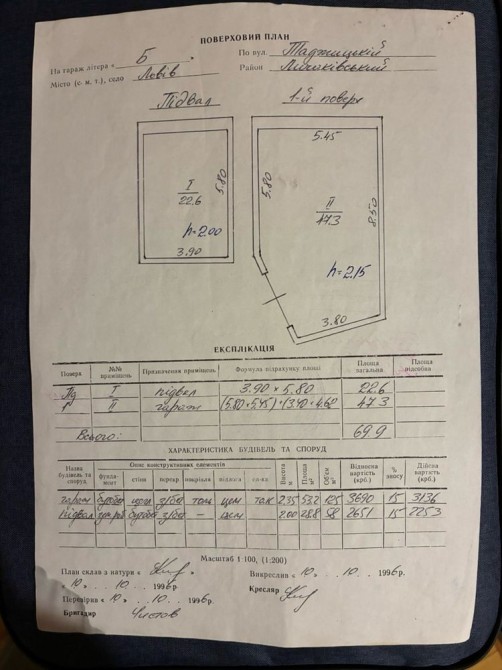 ПОВЕРХОВИЙ ПЛАН
На гараж літера « Б »
По вул. Таджицькій 5
Місто (с. м. т.), село Львів
Район Личаківський
Підвал
1-й поверх
5.45
5.80
5.80
I
22.6
II
47.3
8.50
h=2.00
h=2.15
3.90
3.80
ЕКСПЛІКАЦІЯ
Поверх №№ приміщень Призначення приміщень Формула підрахунку площі Площа загальна Площа підсобна
Пд I підвал 3.90 × 5.80 22.6
1 II гараж (5.80×5.45)+(3.40×4.62 47.3
Всього: 69.9
ХАРАКТЕРИСТИКА БУДІВЕЛЬ ТА СПОРУД
Назва будівель та споруд Опис конструктивних елементів Висота Площа м² Об'єм м³ Відновна вартість (крб.) % зносу Дійсна вартість (крб.)
фундамент стіни перекр покрівля підлога
гараж бутобе цегл з/бет толь цем 235 53.2 125 3690 15 3136
підвал бутобе з/бет — цем 200 28.8 58 2651 15 2253
Масштаб 1:100, (1:200)
План склав з натури «
Викреслив « 10 » . . 10 . . 1996р.
« 10 » . . 10 . . 1996р.
Кресляр
Перевірив « 10 » . 10 . . 1996р.
Бригадир Чистов